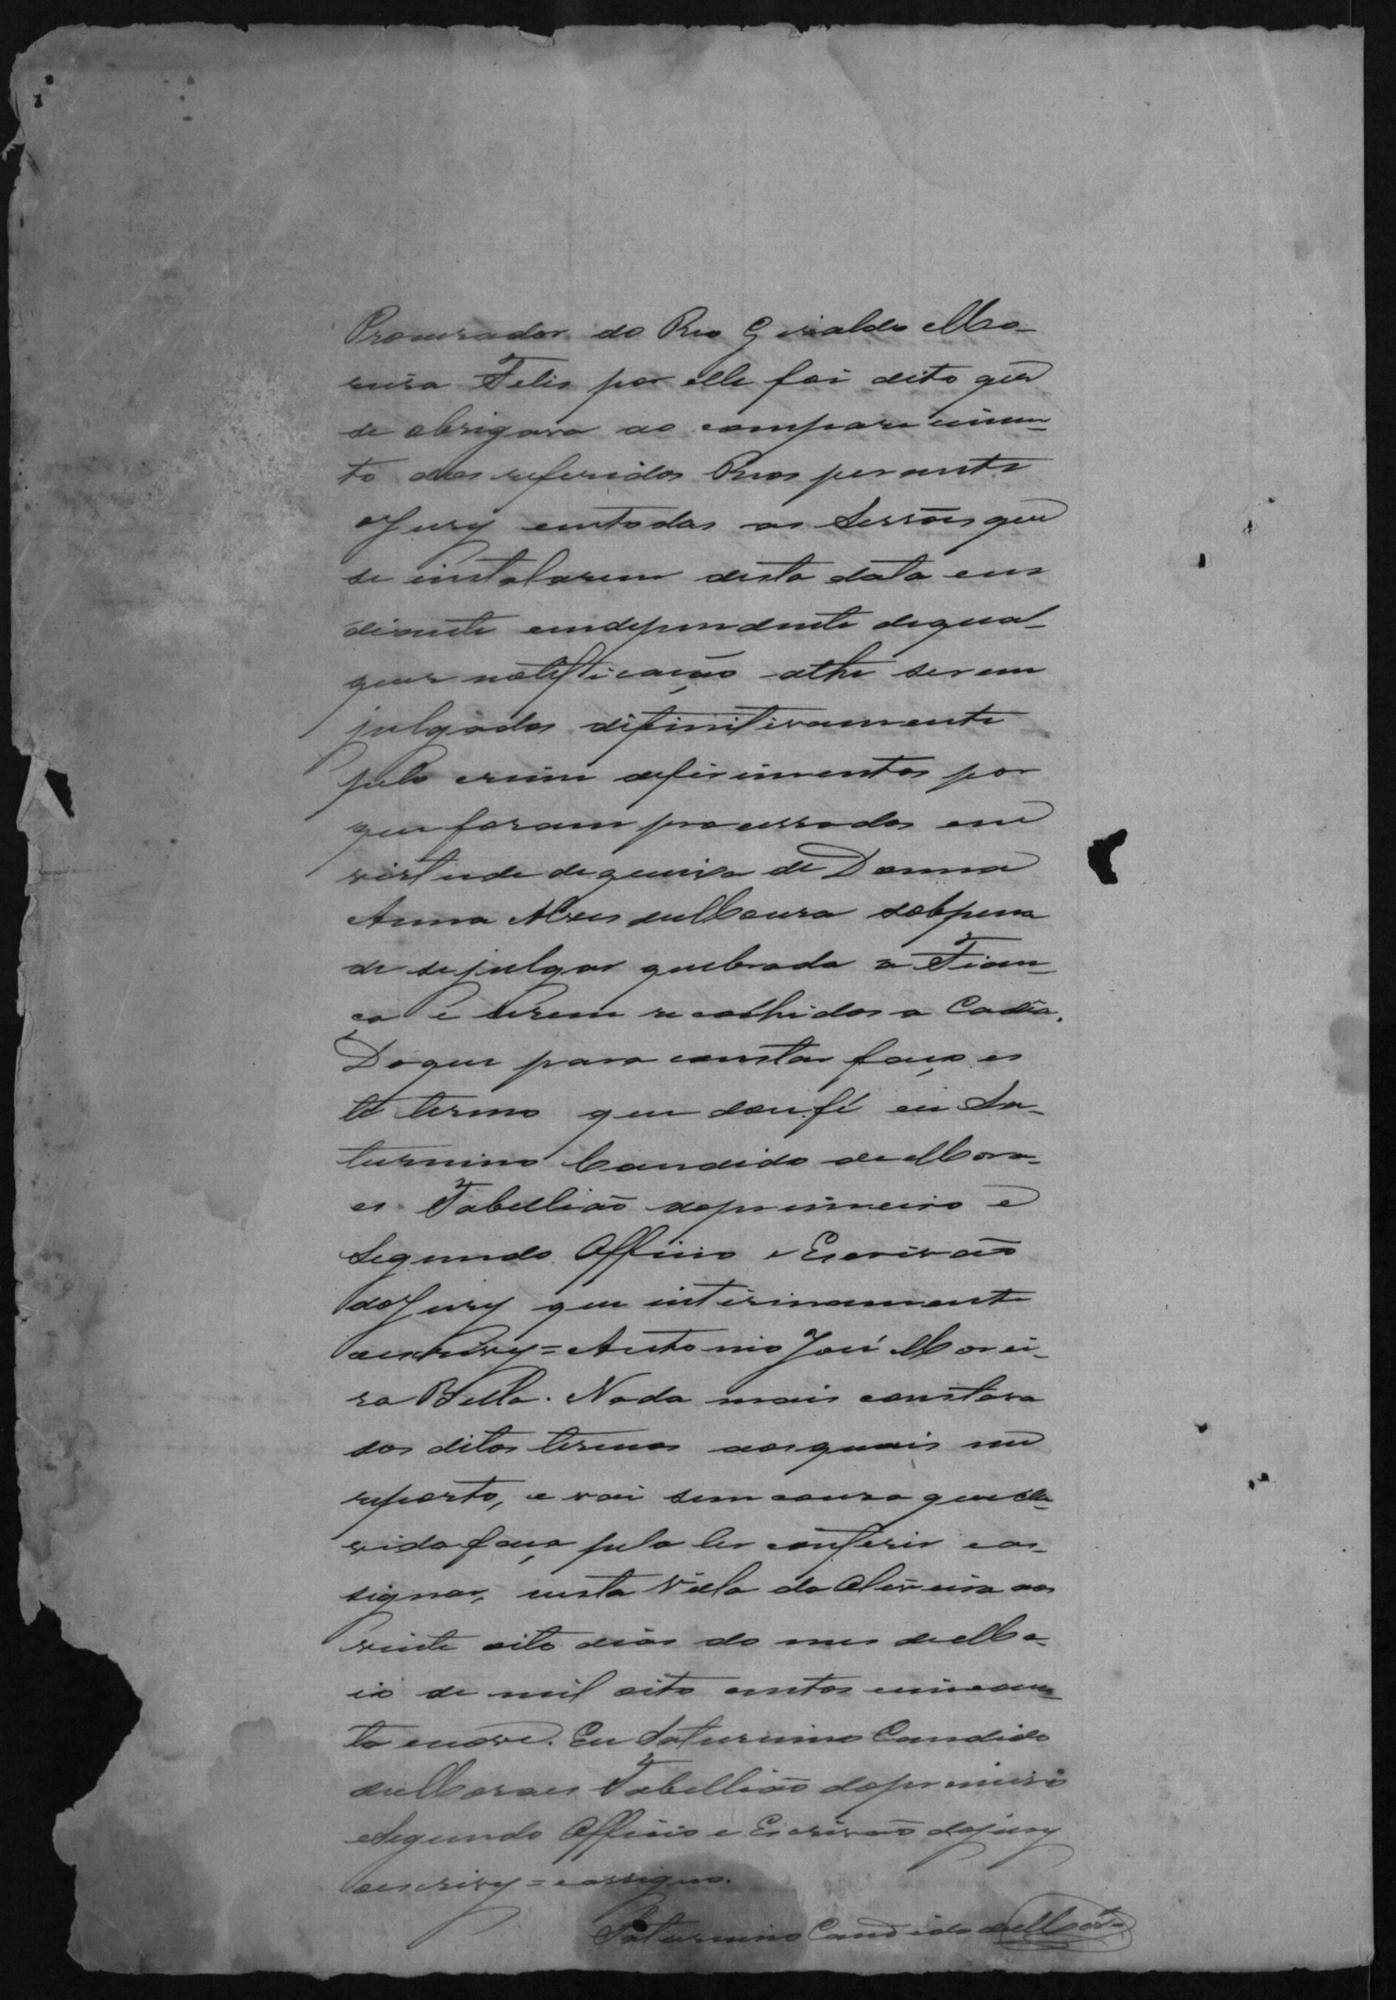 Procurador do Reo Geraldo Mo-
reira Felis por elle foi dito que
se obrigava ao comparecimen-
to dos referidos Reos perante
o Jury em todas as Sessões que
se instalarem desta data em
diante endependente de qual-
quer notificação athe serem
julgados difinitivamente
pelo crime de firimentos por
que foram processados em
virtude de queixa de Donna
Anna Alves de Moura sob pena
de se julgar quebrada a Fian-
ça e serem recolhidos a Cadêa.
Do que para constar faço es
te termo que dou fé eu Sa-
turnino Candido de Mora-
es Tabellião do primeiro e
Segundo Officio e Escrivão
do Jury que interinamente
escrivy = Antonio José Morei-
ra Bello. Nada mais constava
dos ditos termos aos quais me
reporto, e vai sem cousa que du-
vida faça pelo ler conferir e as-
signar, nesta Villa da Oliveira aos
vinte oito dias do mes de Ma-
io de mil oito centos cincoen-
ta e nove. Eu Saturnino Candido
de Moraes Tabellião do primeiro
Segundo Officio e Escrivão do jury
escrivy = e assigno.
Saturnino Candido de Moraes